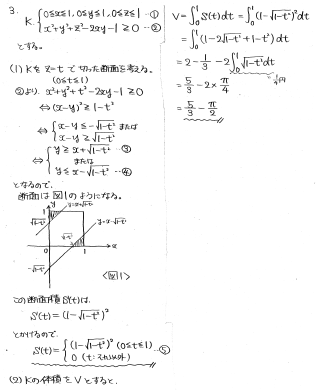 3.
K: { 0≦x≦1, 0≦y≦1, 0≦z≦1 …①
x²+y²+z²-2xy-1≧0 …②
とする。
(1) Kを z=t で切った断面を考える。
(0≦t≦1)
②より x²+y²+t²-2xy-1≧0
⇔ (x-y)²≧1-t²
⇔ { x-y≦-√1-t² または
x-y≧√1-t²
⇔ { y≧x+√1-t² …③
または
y≦x-√1-t² …④
となるので、
断面は図1のようになる。
y
y=x+√1-t²
1
√1-t²
y=x-√1-t²
√1-t²
0
1
x
-√1-t²
<図1>
この断面積S(t)は、
S(t)=(1-√1-t²)²
とかけるので、
S(t)={ (1-√1-t²)² (0≦t≦1)
0 (t:それ以外) …⑤
(2) Kの体積をVとすると、
V=∫₀¹S(t)dt=∫₀¹(1-√1-t²)²dt
=∫₀¹(1-2√1-t²+1-t²)dt
=2-1/3-2∫₀¹√1-t²dt
=5/3-2×π/4
=5/3-π/2